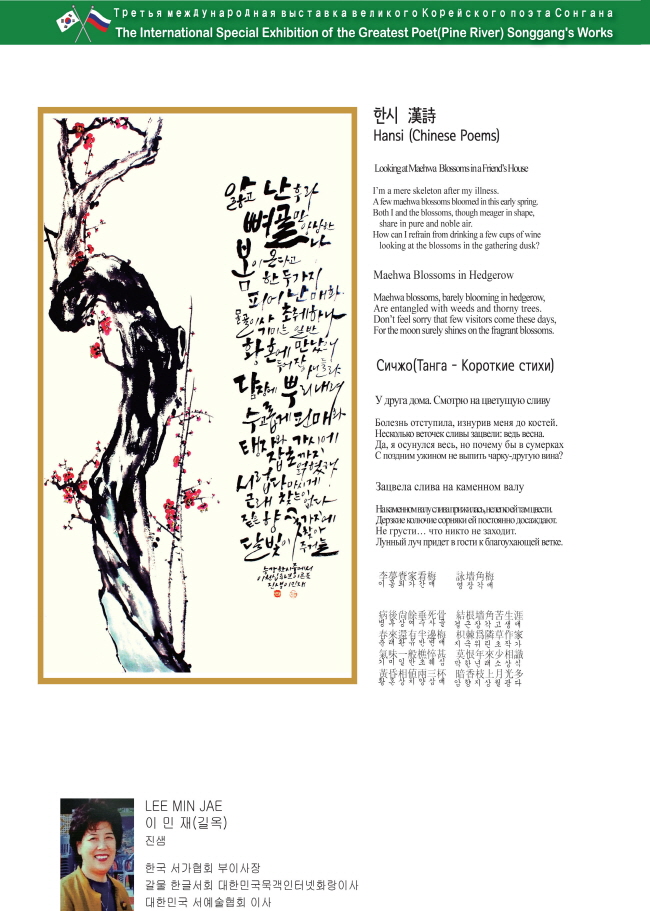 Третья международная выставка великого Корейского поэта Сонгана
The International Special Exhibition of the Greatest Poet(Pine River) Songgang's Works
앓고 난 후라
뼈골만 앙상한
나
봄이 온다고
한 두가지
피어 난 매화
몰골이사 초췌하나
기미는 일반
황혼에 만났거니
담장에 뿌리내려
수고롭게 핀 매화
태자와 가시에
잡초까지
서럽다 마시게
근래 찾는이 없다
짙은 향 가지에
달빛이 찾아
주거늘
한시 漢詩
Hansi (Chinese Poems)
Looking at Maehwa Blossoms in a Friend's House
I'm a mere skeleton after my illness.
A few maehwa blossoms bloomed in this early spring.
Both I and the blossoms, though meager in shape,
share in pure and noble air.
How can I refrain from drinking a few cups of wine
looking at the blossoms in the gathering dusk?
Maehwa Blossoms in Hedgerow
Maehwa blossoms, barely blooming in hedgerow,
Are entangled with weeds and thorny trees.
Don't feel sorry that few visitors come these days,
For the moon surely shines on the fragrant blossoms.
Сичжо(Танга - Короткие стихи)
У друга дома. Смотрю на цветущую сливу
Болезнь отступила, изнурив меня до костей.
Несколько веточек сливы зацвели: ведь весна.
Да, я осунулся весь, но почему бы в сумерках
С поздним ужином не выпить чарку-другую вина?
Зацвела слива на каменном валу
На каменном валу слива прижилась, нелегко ей там цвести.
Дерзкие колючие сорняки ей постоянно досаждают.
Не грусти... что никто не заходит.
Лунный луч придет в гости к благоухающей ветке.
李夢賚家看梅 詠墻角梅
이몽뢰가간매 영장각매
病後尙餘垂死骨 結根墻角苦生涯
병후상여수사골 결근장각고생애
春來還有半邊梅 枳棘爲隣草作家
춘래환유반변매 지극위린초작가
氣味一般憔悴甚 莫恨年來少相識
기미일반초췌심 막한년래소상식
黃昏相値兩三杯 暗香枝上月光多
황혼상치양삼배 암향지상월광다
LEE MIN JAE
이 민 재(길옥)
진샘
한국 서가협회 부이사장
갈물 한글서회 대한민국묵객인터넷화랑이사
대한민국 서예술협회 이사